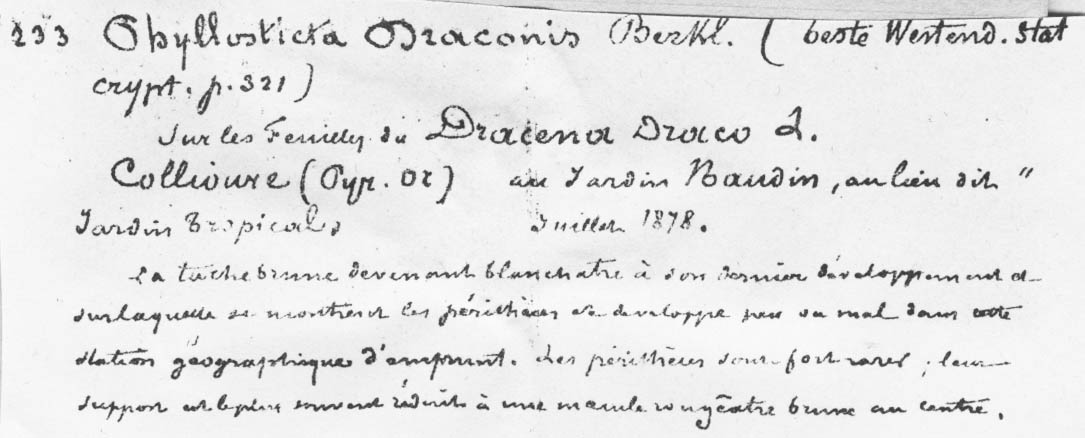 233 Phyllosticta Draconis Berkl. (teste Westend. Stat
crypt. p. 321)
Sur les Feuilles du Dracena Draco L.
Collioure (Pyr. Or) au Jardin Naudin, au lieu dit "
Jardin Tropical, Juillet 1878.
La tache brune devenant blanchatre à son dernier développement et
sur laquelle se montrent les périthèces se developpe peu ou mal dans cette
station géographique d'emprunt. Les périthèces sont fort rares, leur
support est le plus souvent réduit à une macule rougeatre brune au centre.